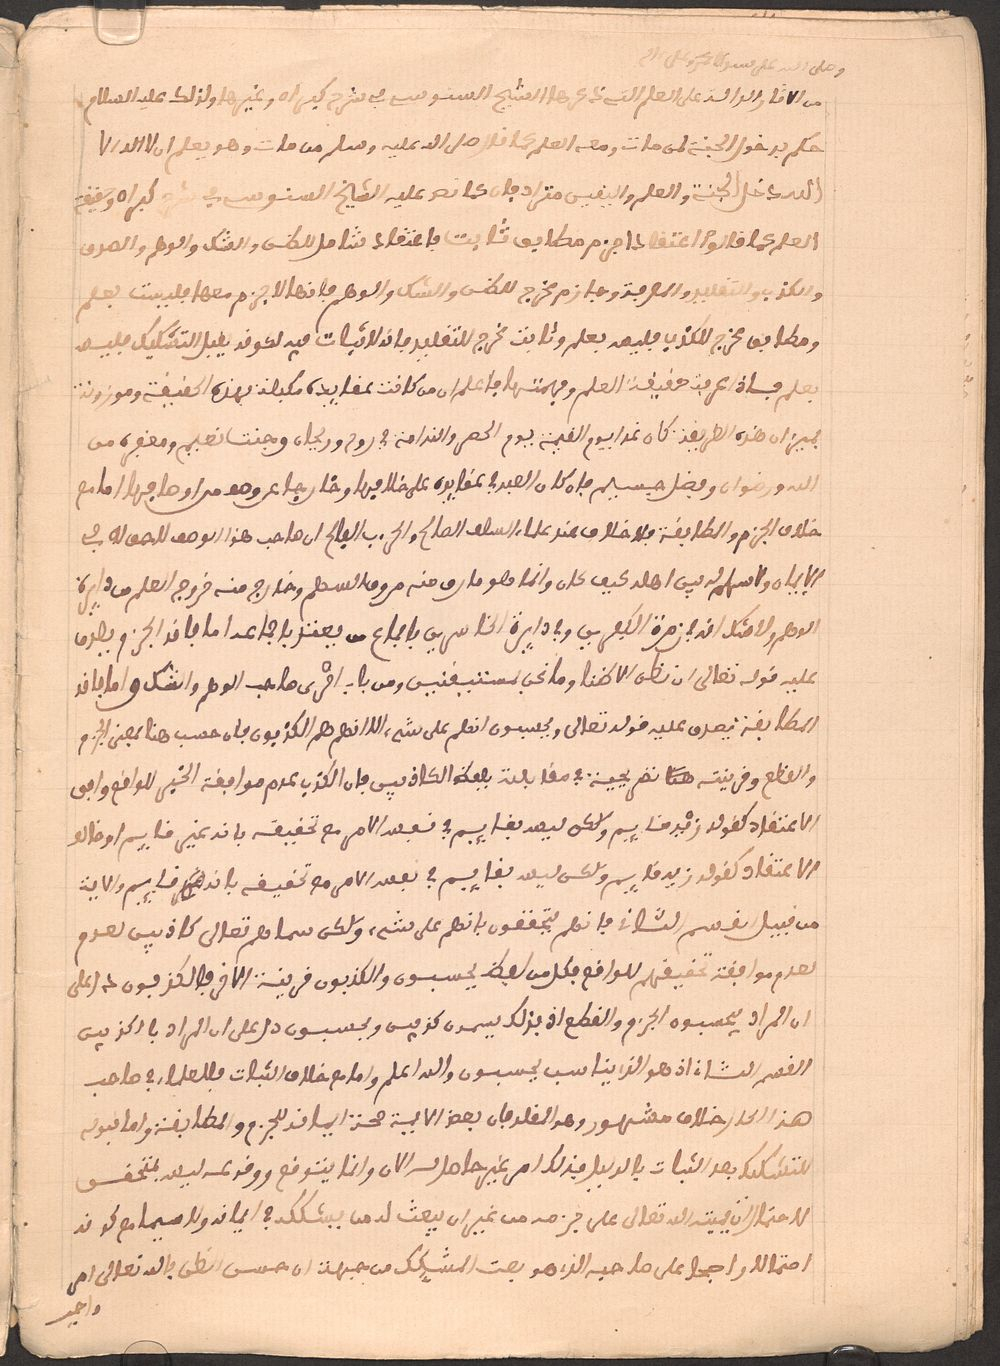 وصلى الله على سيدنا محمد وعلى اله
من الاقار الدالة على العلم التي ذكرها الشيخ السنوسي في شرح كبراه وغيرها ولذلك عليه السلام
حكم بدخول الجنة لمن مات ومعه العلم كما قال صلى الله عليه وسلم من مات وهو يعلم ان لا اله الا
الله دخل الجنة والعلم واليقين مترادفان كما نص عليه الشيخ السنوسي في شرح كبراه وحقيقة
العلم كما قالوا اعتقاد جازم مطابق ثابت فاعتقاد شامل للظن والشك والوهم والصدق
والكذب والتقليد والمعرفة وجازم مخرج للظن والشك والوهم فانها لا جزم معها فليست بعلم
ومطابق مخرج للكذب فليس بعلم وثابت مخرج للتقليد فانه لا ثبات فيه لكونه يقبل التشكيك فليس
بعلم فاذا عرفت حقيقة العلم وفهمتها فاعلم ان من كانت عقايده مكيلة بهذه الحقيقة وموزونة
بميزان هذه الطريقة كان غدا يوم القيمة يوم الحسر والندامة في روح وريحان وجنت نعيم ومغفرة من
الله ورضوان وفضل جسيم فان كان العبد في عقايده على خلافها وخارجا عن وهو مراوها فيها اما مع
خلاف الجزم والمطابقة فلا خلاف عند علماء السلف الصالح والحزب الفالح ان صاحب هذا الوصف لا حصة له في
الايمان ولا سهم له بين اهله كيف كان وانما هو مارق منه مروق السهم وخارج منه خروج العلم من دايرة
الوهم ولا شك انه في زمرة الكفرين وفي دايرة الخاسرين باجماع من يعتد باجماعه اما فاقد الجزم يصدق
عليه قوله تعالى ان نظن الا ظنا وما نحن بمستيقنين ومن باب احرى صاحب الوهم والشك واما فاقد
المطابقة يصدق عليه قوله تعالى ويحسبون انهم على شيء الا انهم هم الكذبون فان حسب هنا بمعنى الجزم
والقطع وقرينته تصريحية في مقابلة بلفظ الكاذبين فان الكذب عدم موافقة الخبر للواقع وافق
الاعتقاد كقوله زيد قايم ولكن ليس بقايم في نفس الامر مع تحقيقه بانه غير قايم او خالف
الاعتقاد كقوله زيد قايم ولكن ليس بقايم في نفس الامر مع تحقيقه بانه قايم والاية
من قبيل القسم الثاني فانهم يتحققون بانهم على شيء ولكن سماهم تعالى كاذبين لعدم
لعدم موافقة تحقيقهم للواقع فكل من لفظ يحسبون والكذبون قرينة الاخر فالكذبون دل على
ان المراد بيحسبون الجزم والقطع اذ بذلك يسمون كذبين ويحسبون دل على ان المراد بالكذبين
القسم الثاني اذ هو الذي يناسب يحسبون والله اعلم واما مع خلاف الثبات فللعلماء في صاحب
هذا الحال خلاف مشهور وهو المقلد فان بعض الايمة صحح ايمانه للجزم والمطابقة واما قبوله
للتشكيك بعد الثبات بالدليل فذلك امر غير حاصل له الان وانما يتوقع ووقوعه ليس بمتحقق
لاحتمال ان يميته الله تعالى على جزمه من غير ان يبعث له من يشككه في ايمانه ولا سيما مع كونه
احتمالا راجحا على صاحبه الذي هو بعث المشكك من جهة ان حسن الظن بالله تعالى امر
واجب